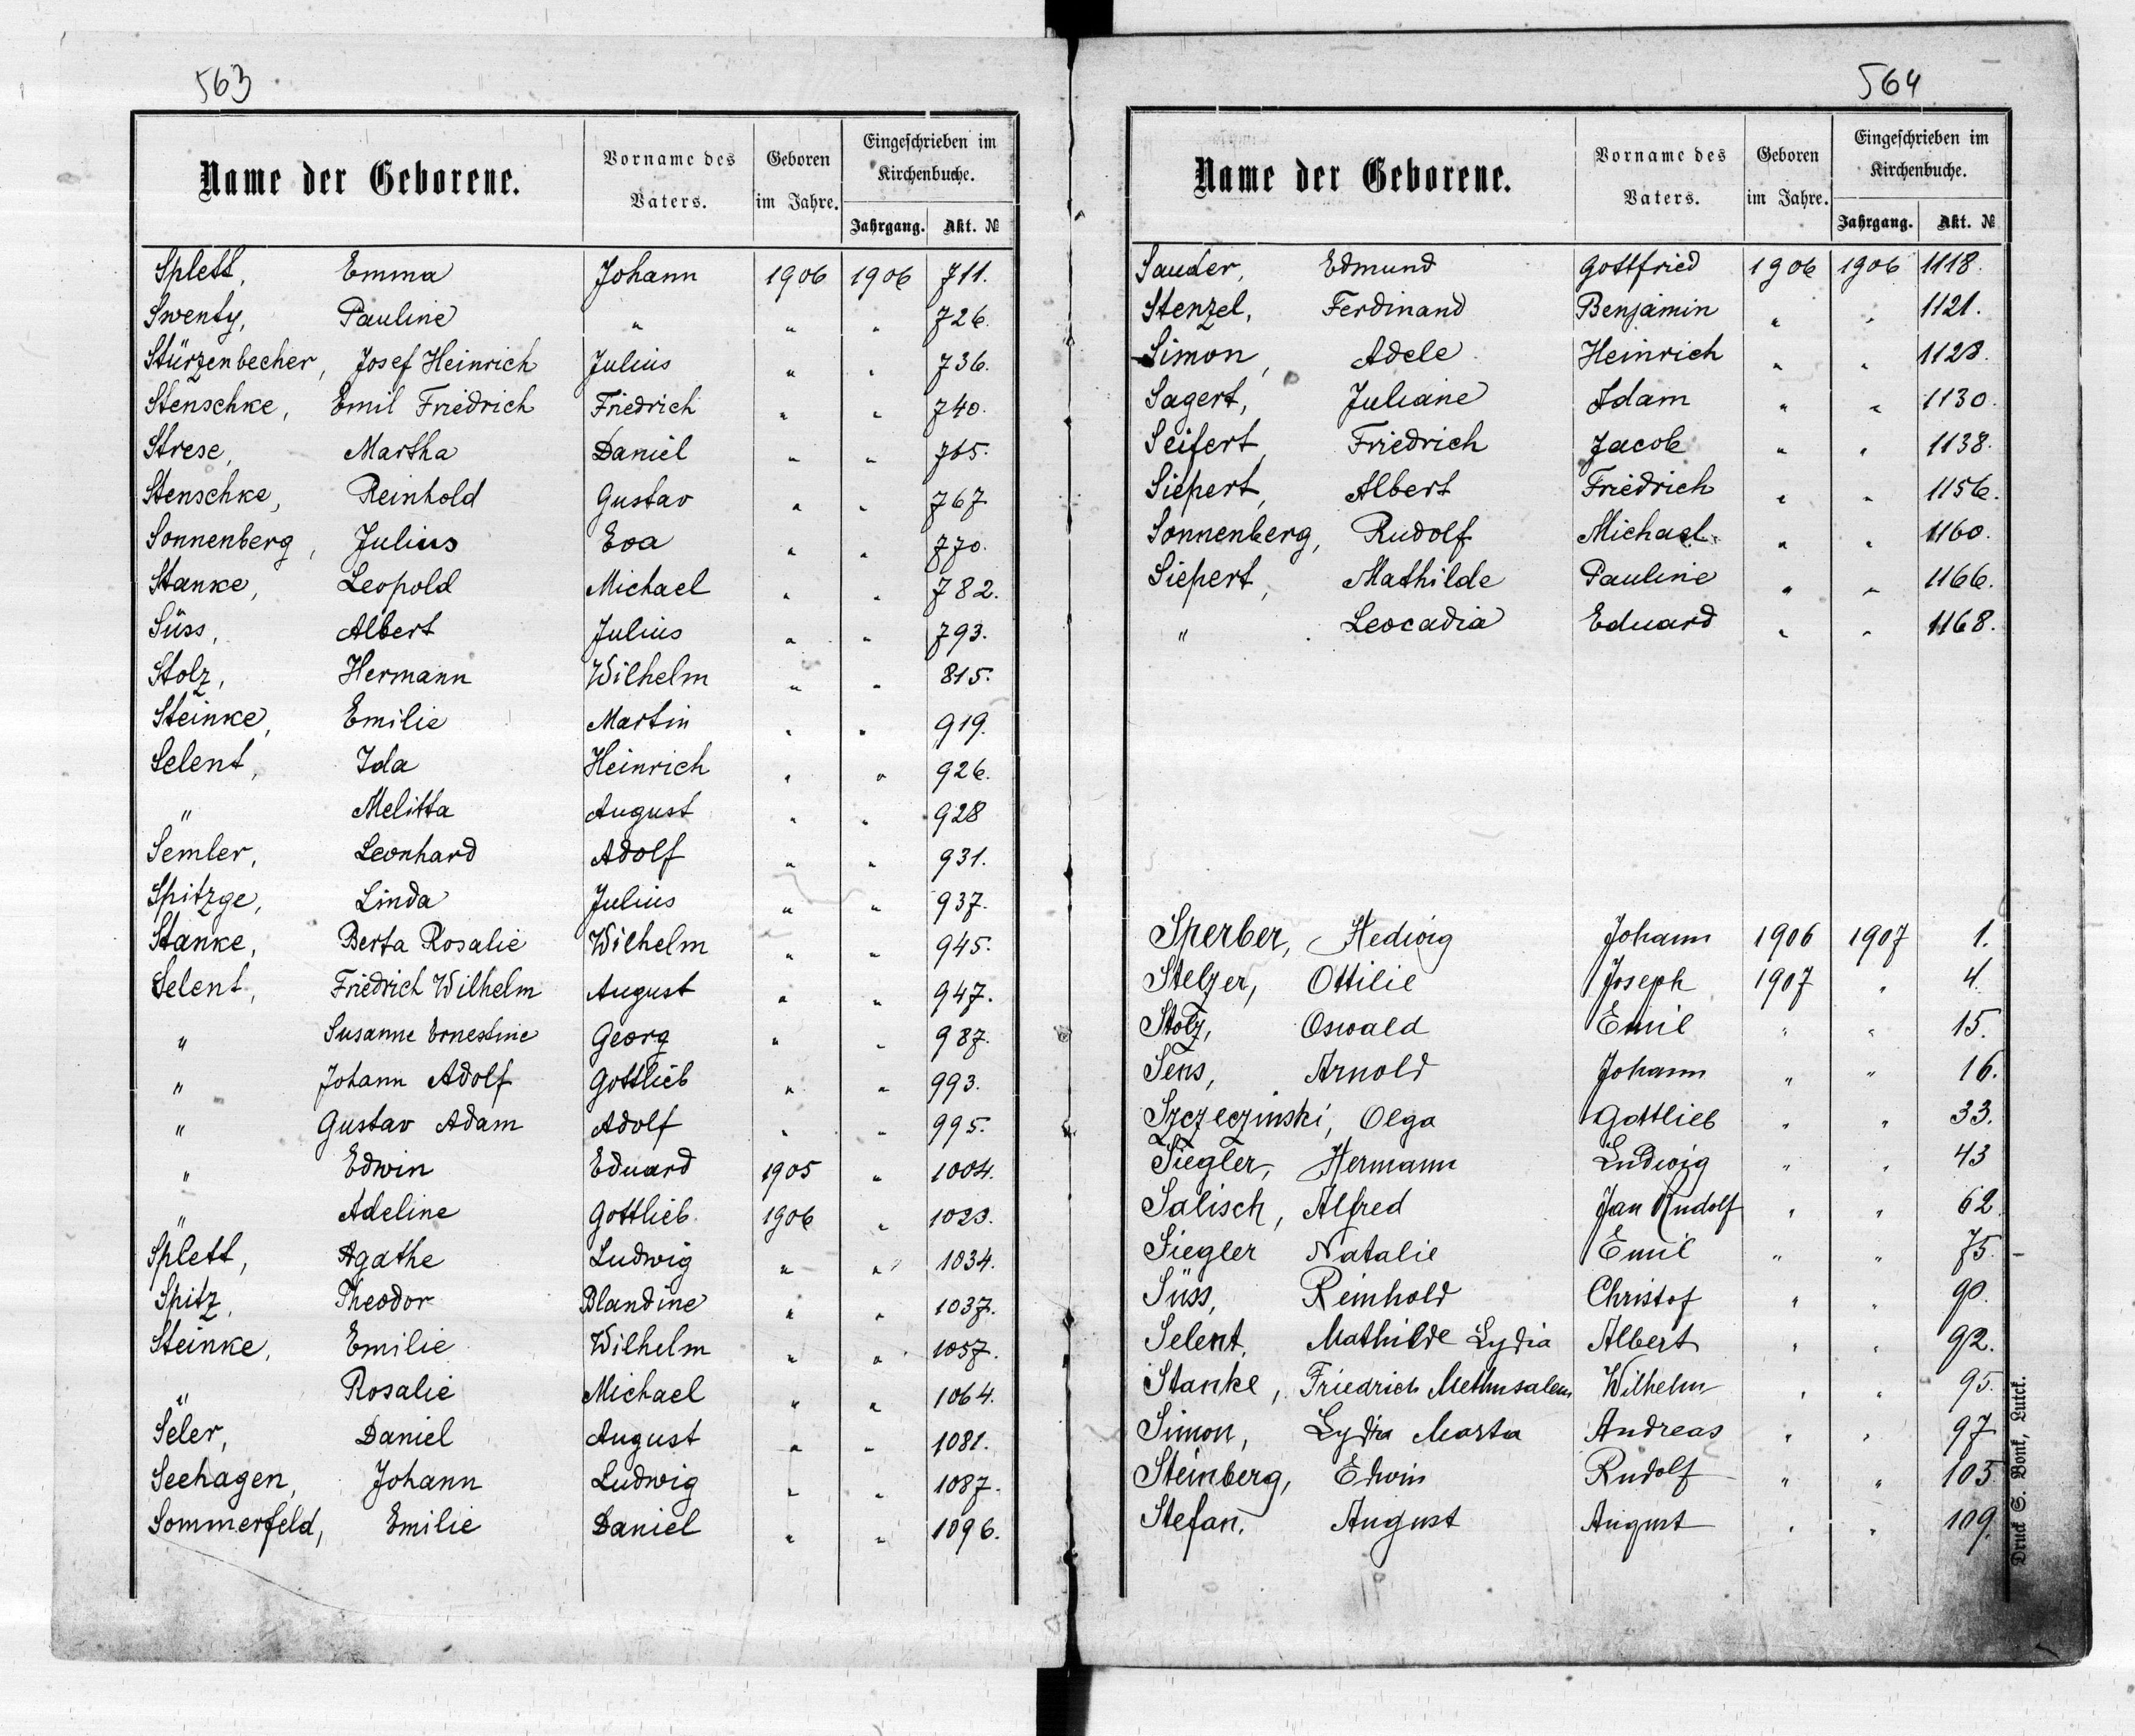 563
Name der Geborene. Vorname des Vaters. Geboren im Jahre. Eingeschrieben im Kirchenbuche. Jahrgang. Akt. №
Splett, Emma Johann 1906 1906 711.
Swenty, Pauline " " " 726.
Stürzenbecher, Josef Heinrich Julius " " 736.
Stenschke, Emil Friedrich Friedrich " " 740.
Strese, Martha Daniel " " 765.
Stenschke, Reinhold Gustav " " 767
Sonnenberg, Julius Eva " " 770.
Stanke, Leopold Michael " " 782.
Süss, Albert Julius " " 793.
Stolz, Hermann Wilhelm " " 815.
Steinke, Emilie Martin " " 919.
Selent, Ida Heinrich " " 926.
" Melitta August " " 928
Semler, Leonhard Adolf " " 931.
Spitzge, Linda Julius " " 937.
Stanke, Berta Rosalie Wilhelm " " 945.
Selent, Friedrich Wilhelm August " " 947.
" Susanne Ernestine Georg " " 987.
" Johann Adolf Gottlieb " " 993.
" Gustav Adam Adolf " " 995.
" Edwin Eduard 1905 " 1004.
" Adeline Gottlieb 1906 " 1023.
Splett, Agathe Ludwig " " 1034.
Spitz, Theodor Blandine " " 1037.
Steinke, Emilie Wilhelm " " 1057.
" Rosalie Michael " " 1064.
Seler, Daniel August " " 1081.
Seehagen, Johann Ludwig " " 1087.
Sommerfeld, Emilie Daniel " " 1096.
564
Name der Geborene. Vorname des Vaters. Geboren im Jahre. Eingeschrieben im Kirchenbuche. Jahrgang. Akt. №
Sauder, Edmund Gottfried 1906 1906 1118.
Stenzel, Ferdinand Benjamin " " 1121.
Simon, Adele Heinrich " " 1128.
Sagert, Juliane Adam " " 1130.
Seifert, Friedrich Jacob " " 1138.
Siepert, Albert Friedrich " " 1156.
Sonnenberg, Rudolf Michael " " 1160.
Siepert, Mathilde Pauline " " 1166.
" Leocadia Eduard " " 1168.
Sperber, Hedwig Johann 1906 1907 1.
Stelzer, Ottilie Joseph 1907 " 4.
Stolz, Oswald Emil " " 15.
Sens, Arnold Johann " " 16.
Szczeczinski, Olga Gottlieb " " 33.
Siegler, Hermann Ludwig " " 43
Salisch, Alfred Jan Rudolf " " 62.
Siegler Natalie Emil " " 75.
Süss, Reinhold Christof " " 90.
Selent, Mathilde Lydia Albert " " 92.
Stanke, Friedrich Methusalem Wilhelm " " 95.
Simon, Lydia Marta Andreas " " 97
Steinberg, Edwin Rudolf " " 105
Stefan, August August " " 109.
Druck S. Bonk, Lutck.